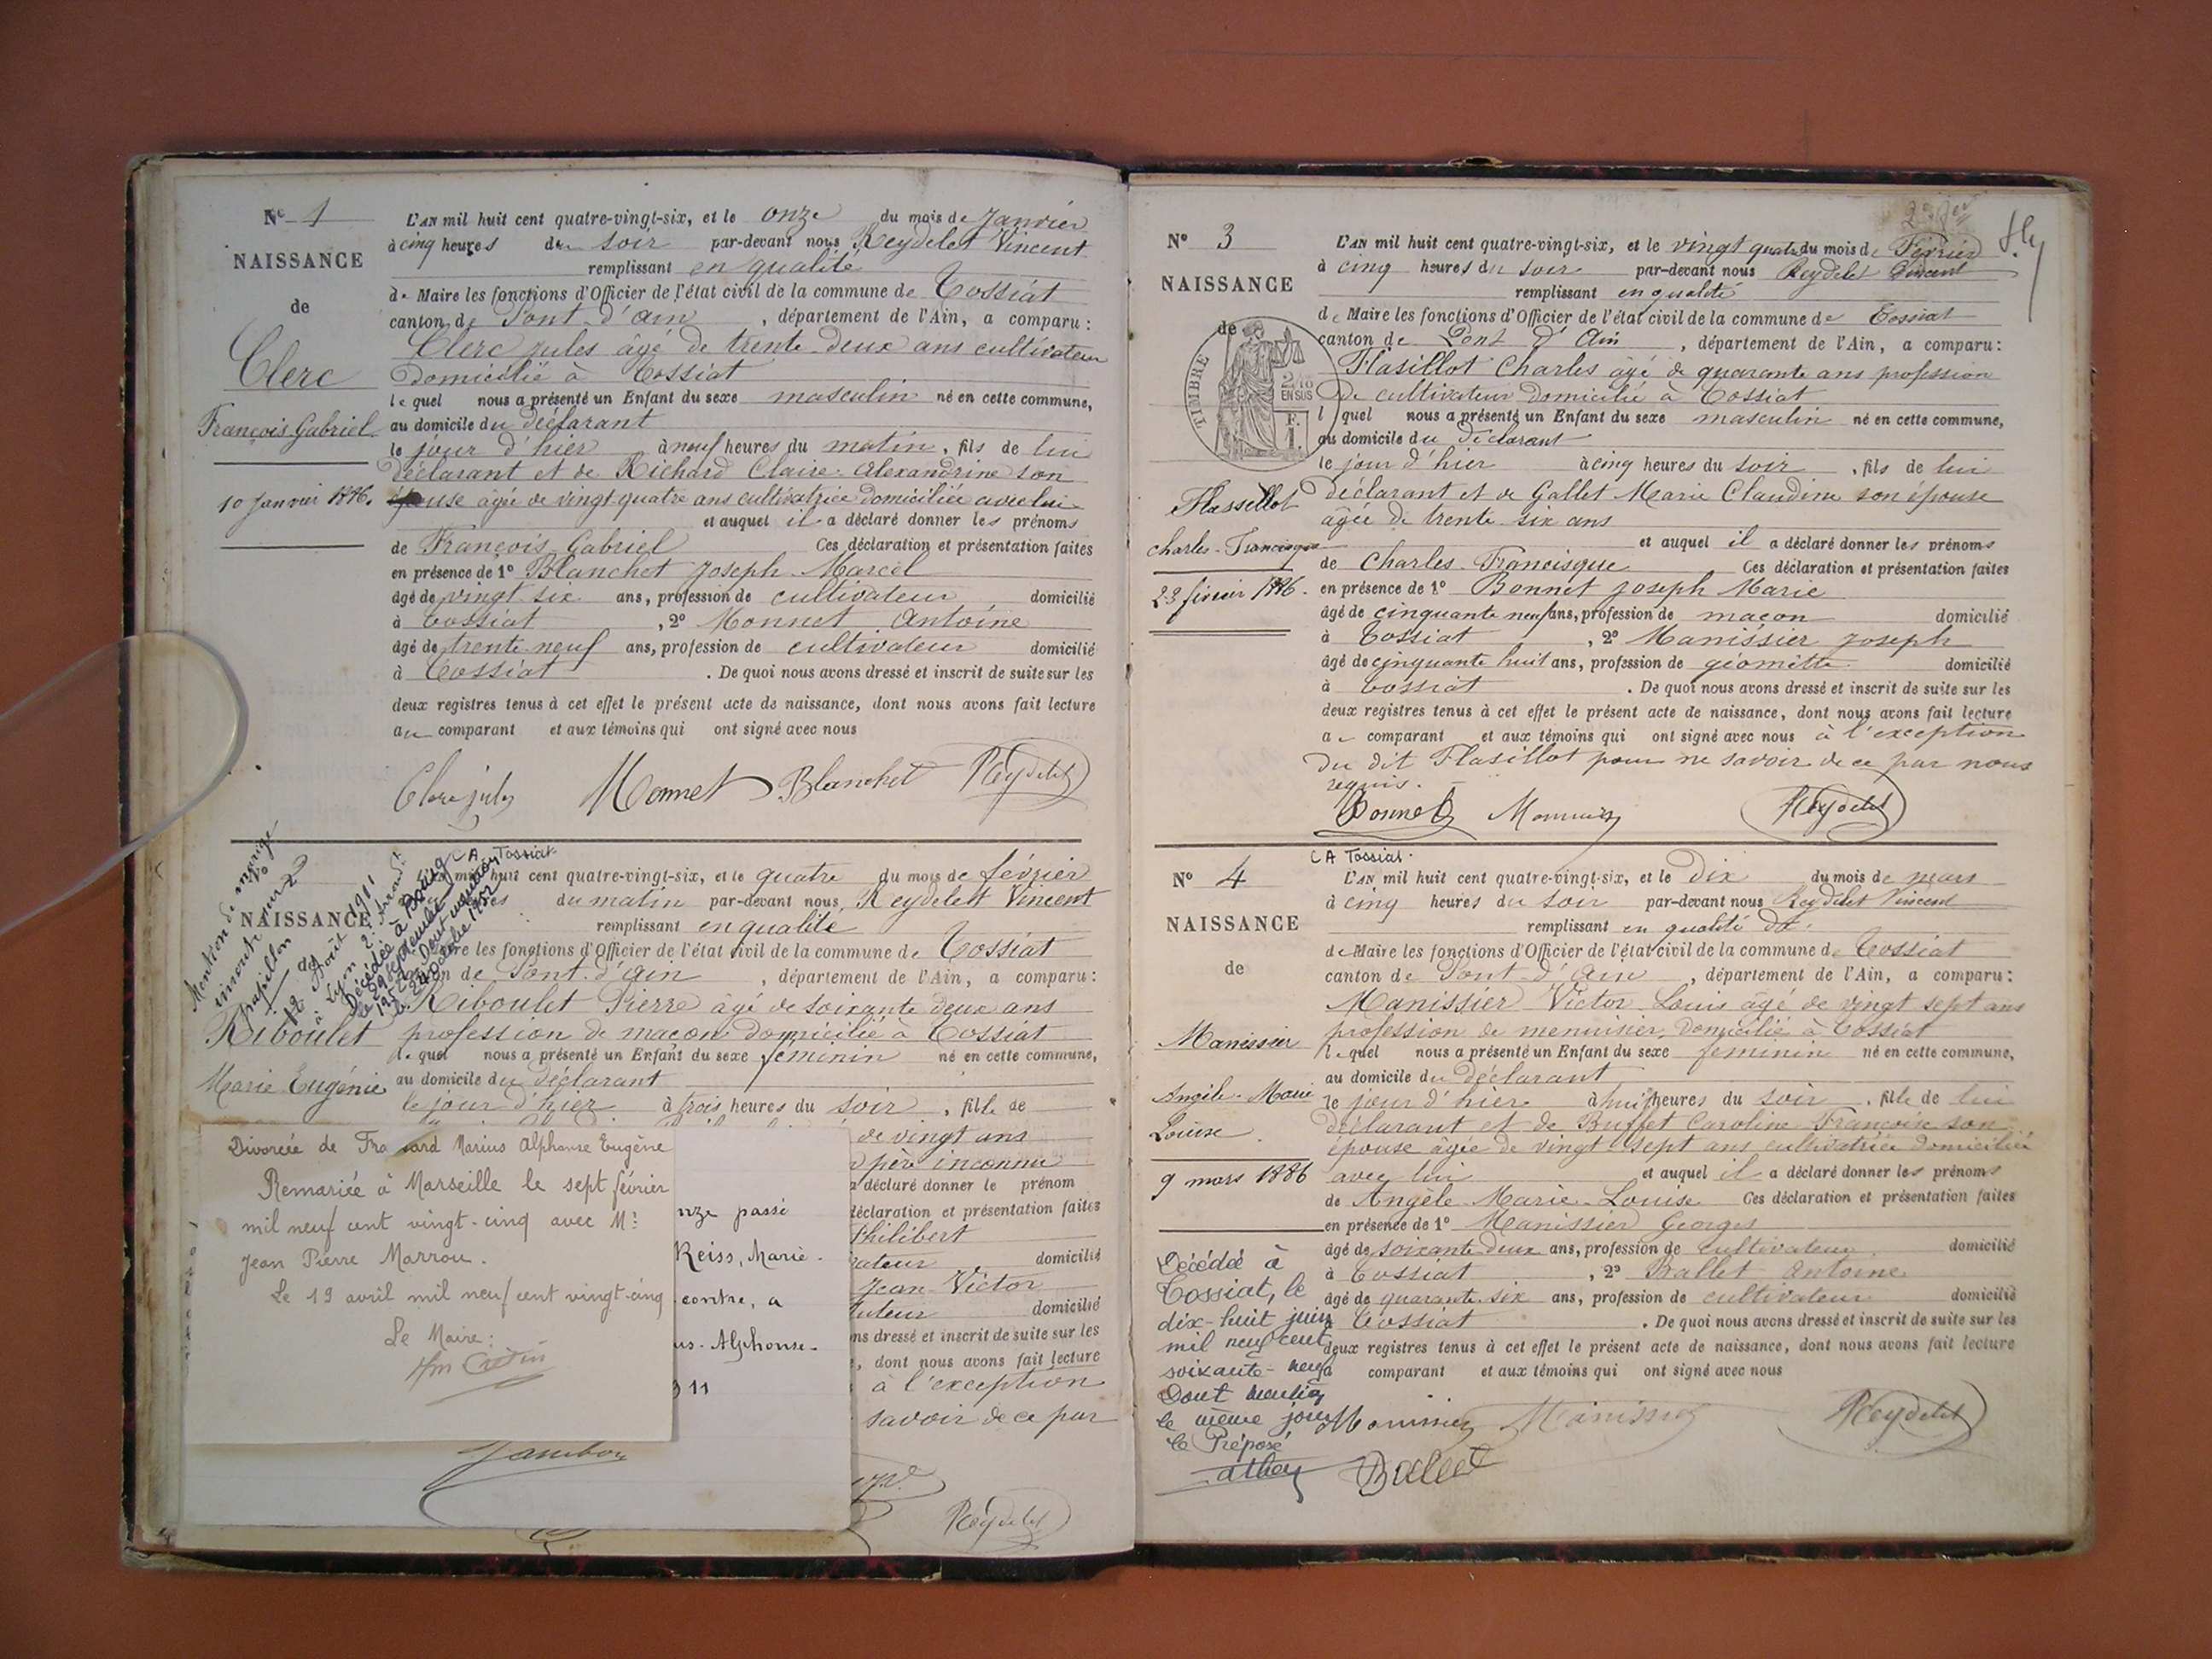 Nº 1
NAISSANCE
de
Clerc
François Gabriel
10 Janvier 1886.
L'AN mil huit cent quatre-vingt-six, et le onze du mois de Janvier
à cinq heures du soir par-devant nous Reydelet Vincent
remplissant en qualité
de Maire les fonctions d'Officier de l'état civil de la commune de Tossiat
canton de Pont d'ain, département de l'Ain, a comparu :
Clerc jules âgé de trente deux ans cultivateur
domicilié à Tossiat
lequel nous a présenté un Enfant du sexe masculin né en cette commune,
au domicile du déclarant
le jour d'hier à neuf heures du matin, fils de lui
déclarant et de Richard Claire Alexandrine son
épouse âgée de vingt quatre ans cultivatrice domiciliée avec lui
et auquel il a déclaré donner les prénoms
de François Gabriel Ces déclaration et présentation faites
en présence de 1º Blanchet Joseph Marcel
âgé de vingt six ans, profession de cultivateur domicilié
à Tossiat, 2º Monnet Antoine
âgé de trente neuf ans, profession de cultivateur domicilié
à Tossiat. De quoi nous avons dressé et inscrit de suite sur les
deux registres tenus à cet effet le présent acte de naissance, dont nous avons fait lecture
au comparant et aux témoins qui ont signé avec nous
Clerc jules Monnet Blanchet Reydelet
CA Tossiat
Mention de mariage
inscrite sur
papillon
12 Août 1911
à Lyon 2e Arrondt
Décédée à Bourg
le 29 septembre
1952 Dont mention
le 2 octobre 1952
Nº 2
NAISSANCE
de
Riboulet
Marie Eugénie
L'AN mil huit cent quatre-vingt-six, et le quatre du mois de février
heures du matin par-devant nous Reydelet Vincent
remplissant en qualité
de Maire les fonctions d'Officier de l'état civil de la commune de Tossiat
canton de Pont d'ain, département de l'Ain, a comparu :
Riboulet Pierre âgé de soixante deux ans
profession de maçon domicilié à Tossiat
lequel nous a présenté un Enfant du sexe féminin né en cette commune,
au domicile du déclarant
le jour d'hier à trois heures du soir, fille de
de vingt ans
père inconnu
a déclaré donner le prénom
déclaration et présentation faites
Philibert
domicilié
Jean Victor
domicilié
ns dressé et inscrit de suite sur les
, dont nous avons fait lecture
à l'exception
savoir de ce par
Reydelet
Divorcée de Fra sard Marius Alphonse Eugène
Remariée à Marseille le sept février
mil neuf cent vingt-cinq avec Mr
Jean Pierre Marrou.
Le 19 avril mil neuf cent vingt-cinq
Le Maire :
nze passé
Reiss, Marie-
contre, a
us-Alphonse-
11
Jambon
Nº 3
NAISSANCE
de
TIMBRE
2/10
EN SUS
F.
1.
Flassellot
Charles-Francisque
23 février 1886.
L'AN mil huit cent quatre-vingt-six, et le vingt quatre du mois de Février
à cinq heures du soir par-devant nous Reydelet Vincent
remplissant en qualité
de Maire les fonctions d'Officier de l'état civil de la commune de Tossiat
canton de Pont d'Ain, département de l'Ain, a comparu :
Flasillot Charles âgé de quarante ans profession
De cultivateur domicilié à Tossiat
l quel nous a présenté un Enfant du sexe masculin né en cette commune,
au domicile du déclarant
le jour d'hier à cinq heures du soir, fils de lui
déclarant et de Gallet Marie Claudine son épouse
âgée de trente six ans
et auquel il a déclaré donner les prénoms
de Charles Francisque Ces déclaration et présentation faites
en présence de 1º Bonnet Joseph Marie
âgé de cinquante neuf ans, profession de maçon domicilié
à Tossiat, 2º Manissier Joseph
âgé de cinquante huit ans, profession de géomètre domicilié
à Tossiat. De quoi nous avons dressé et inscrit de suite sur les
deux registres tenus à cet effet le présent acte de naissance, dont nous avons fait lecture
au comparant et aux témoins qui ont signé avec nous à l'exception
du dit Flasillot pour ne savoir de ce par nous
requis.
Bonnet Reydelet
CA Tossiat.
Nº 4
NAISSANCE
de
Manissier
Angèle-Marie
Louise
9 mars 1886
Décédée à
Tossiat, le
dix-huit juin
mil neuf cent
soixante-neuf
Dont mention
le même jour
le Préposé
L'AN mil huit cent quatre-vingt-six, et le Dix du mois de mars
à cinq heures du soir par-devant nous Reydelet Vincent
remplissant en qualité de
de Maire les fonctions d'Officier de l'état civil de la commune de Tossiat
canton de Pont d'Ain, département de l'Ain, a comparu :
Manissier Victor Louis âgé de vingt sept ans
profession de menuisier, domicilié à Tossiat
lequel nous a présenté un Enfant du sexe féminin né en cette commune,
au domicile du déclarant
le jour d'hier à huit heures du soir, fille de lui
déclarant et de Buffet Caroline Françoise son
épouse âgée de vingt sept ans cultivatrice domiciliée
avec lui et auquel il a déclaré donner les prénoms
de Angèle-Marie-Louise Ces déclaration et présentation faites
en présence de 1º Manissier Georges
âgé de soixante deux ans, profession de cultivateur domicilié
à Tossiat, 2º Ballet Antoine
âgé de quarante six ans, profession de cultivateur domicilié
à Tossiat. De quoi nous avons dressé et inscrit de suite sur les
deux registres tenus à cet effet le présent acte de naissance, dont nous avons fait lecture
comparant et aux témoins qui ont signé avec nous
Manissier Manissier Reydelet
Ballet